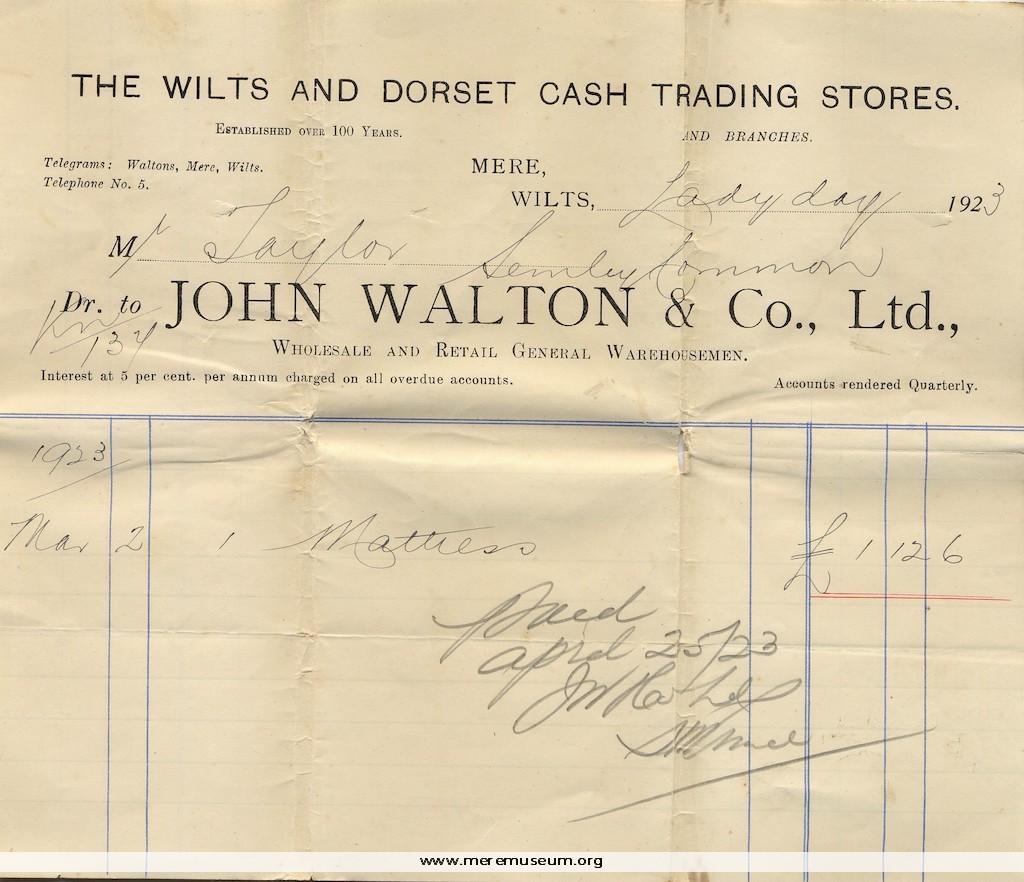 THE WILTS AND DORSET CASH TRADING STORES.
ESTABLISHED OVER 100 YEARS.
AND BRANCHES.
Telegrams: Waltons, Mere, Wilts.
Telephone No. 5.
MERE,
WILTS, Lady day 1923
Mr Taylor Semley Common
Dr. to JOHN WALTON & Co., Ltd.,
137
WHOLESALE AND RETAIL GENERAL WAREHOUSEMEN.
Interest at 5 per cent. per annum charged on all overdue accounts.
Accounts rendered Quarterly.
1923
Mar 2 1 Mattress £ 1 12 6
Paid
April 25/23
www.meremuseum.org